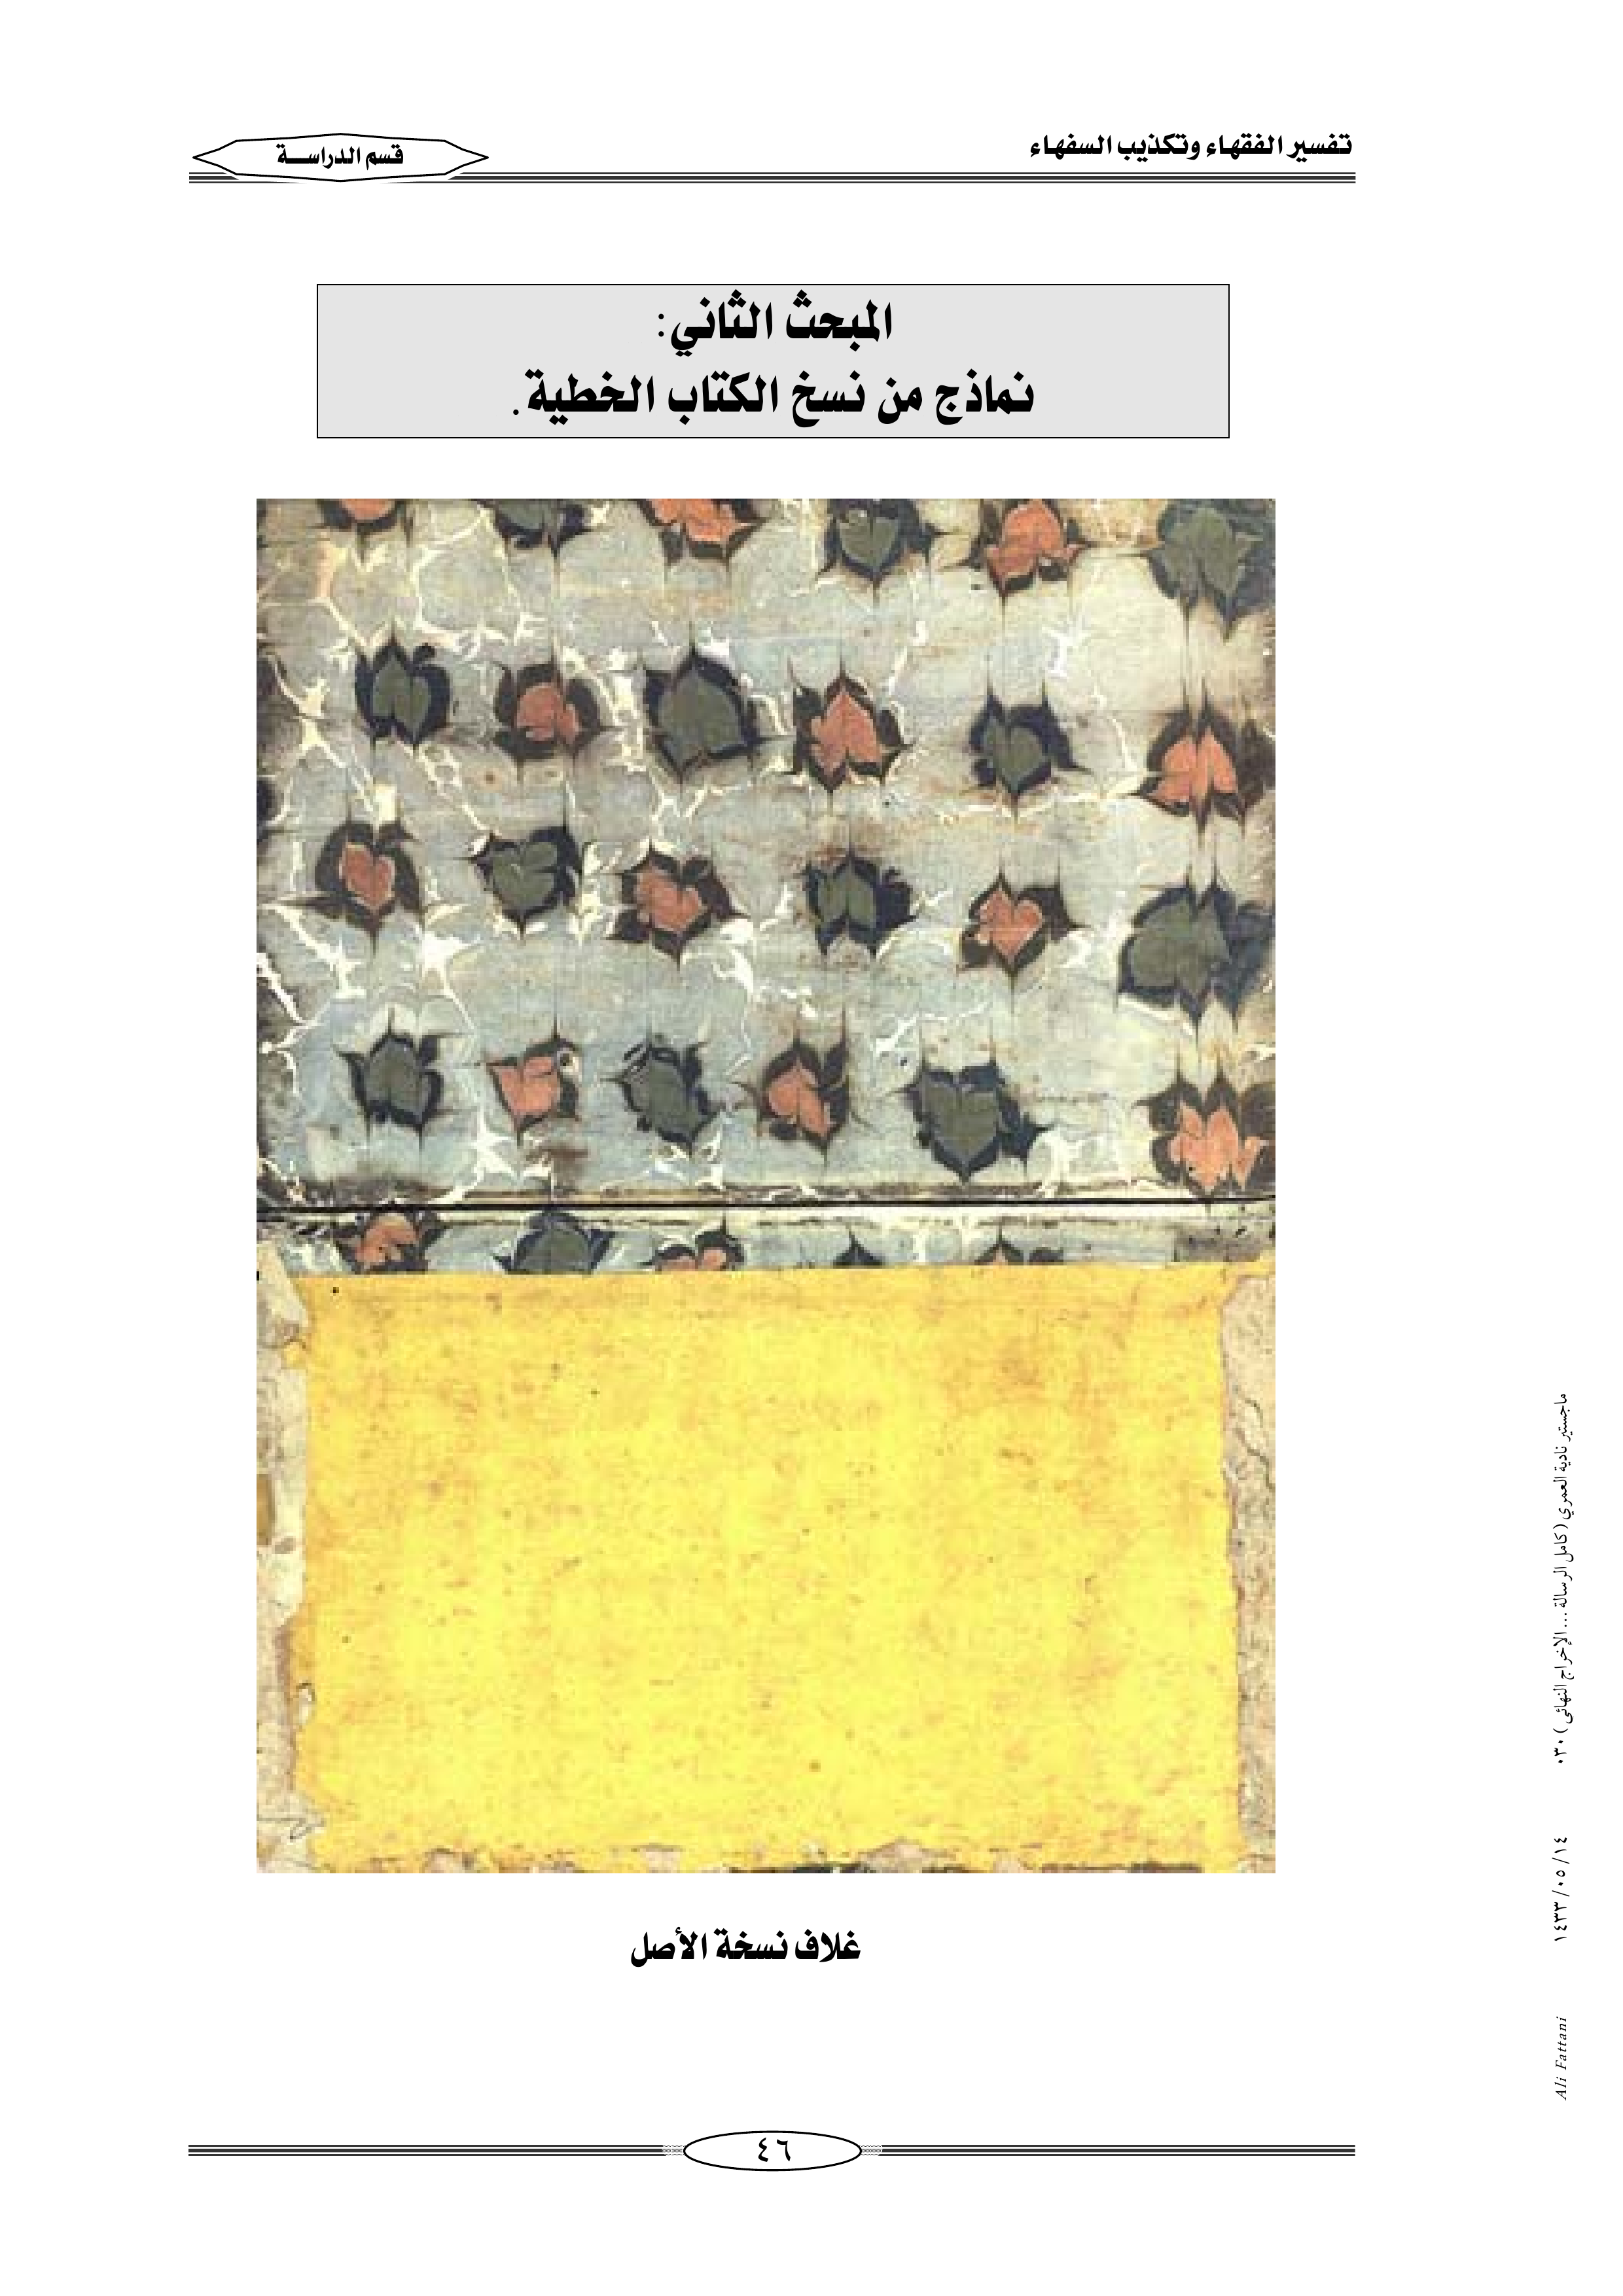 تفسير الفقهاء وتكذيب السفهاء
قسم الدراســة
المبحث الثاني:
نماذج من نسخ الكتاب الخطية.
غلاف نسخة الأصل
٤٦
ماجستير نادية العمري ( كامل الرسالة ... الإخراج النهائي ) ٠٣٠
١٤٣٣/٠٥/١٤
Ali Fattani